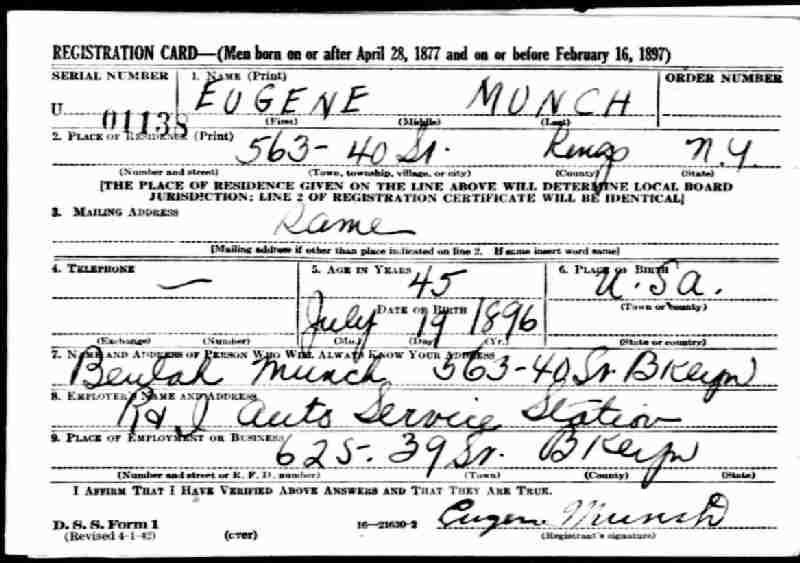 REGISTRATION CARD—(Men born on or after April 28, 1877 and on or before February 16, 1897)
SERIAL NUMBER 1. NAME (Print) ORDER NUMBER
U 01138 EUGENE MUNCH
(First) (Middle) (Last)
2. PLACE OF RESIDENCE (Print)
563-40 St. Kings N.Y.
(Number and street) (Town, township, village, or city) (County) (State)
[THE PLACE OF RESIDENCE GIVEN ON THE LINE ABOVE WILL DETERMINE LOCAL BOARD
JURISDICTION; LINE 2 OF REGISTRATION CERTIFICATE WILL BE IDENTICAL]
3. MAILING ADDRESS
Same
[Mailing address if other than place indicated on line 2. If same insert word same]
4. TELEPHONE 5. AGE IN YEARS 6. PLACE OF BIRTH
— 45 U.S.A.
DATE OF BIRTH (Town or county)
July 19 1896
(Exchange) (Number) (Mo.) (Day) (Yr.) (State or country)
7. NAME AND ADDRESS OF PERSON WHO WILL ALWAYS KNOW YOUR ADDRESS
Beulah Munch 563-40 St. BKlyn
8. EMPLOYER'S NAME AND ADDRESS
Auto Service Station
9. PLACE OF EMPLOYMENT OR BUSINESS
625-39 St. BKlyn
(Number and street or R. F. D. number) (Town) (County) (State)
I AFFIRM THAT I HAVE VERIFIED ABOVE ANSWERS AND THAT THEY ARE TRUE.
D. S. S. Form 1 16—21630-2 Eugene Munch
(Revised 4-1-42) (over) (Registrant's signature)